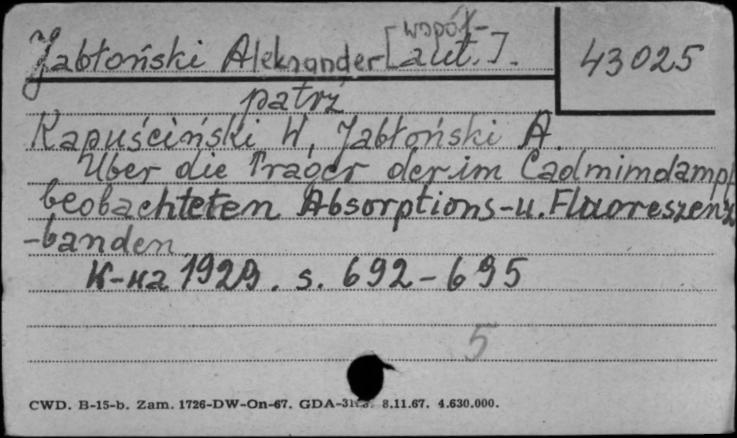 Jabłoński Aleksander [współ-
aut.].
43025
patrz
Kapuściński W, Jabłoński A.
Uber die Trager der im Cadmimdampf
beobachteten Absorptions-u. Fluoreszenz
-banden
K-ka 1929. s. 692-695
5
CWD. B-15-b. Zam. 1726-DW-On-67. GDA- 8.11.67. 4.630.000.